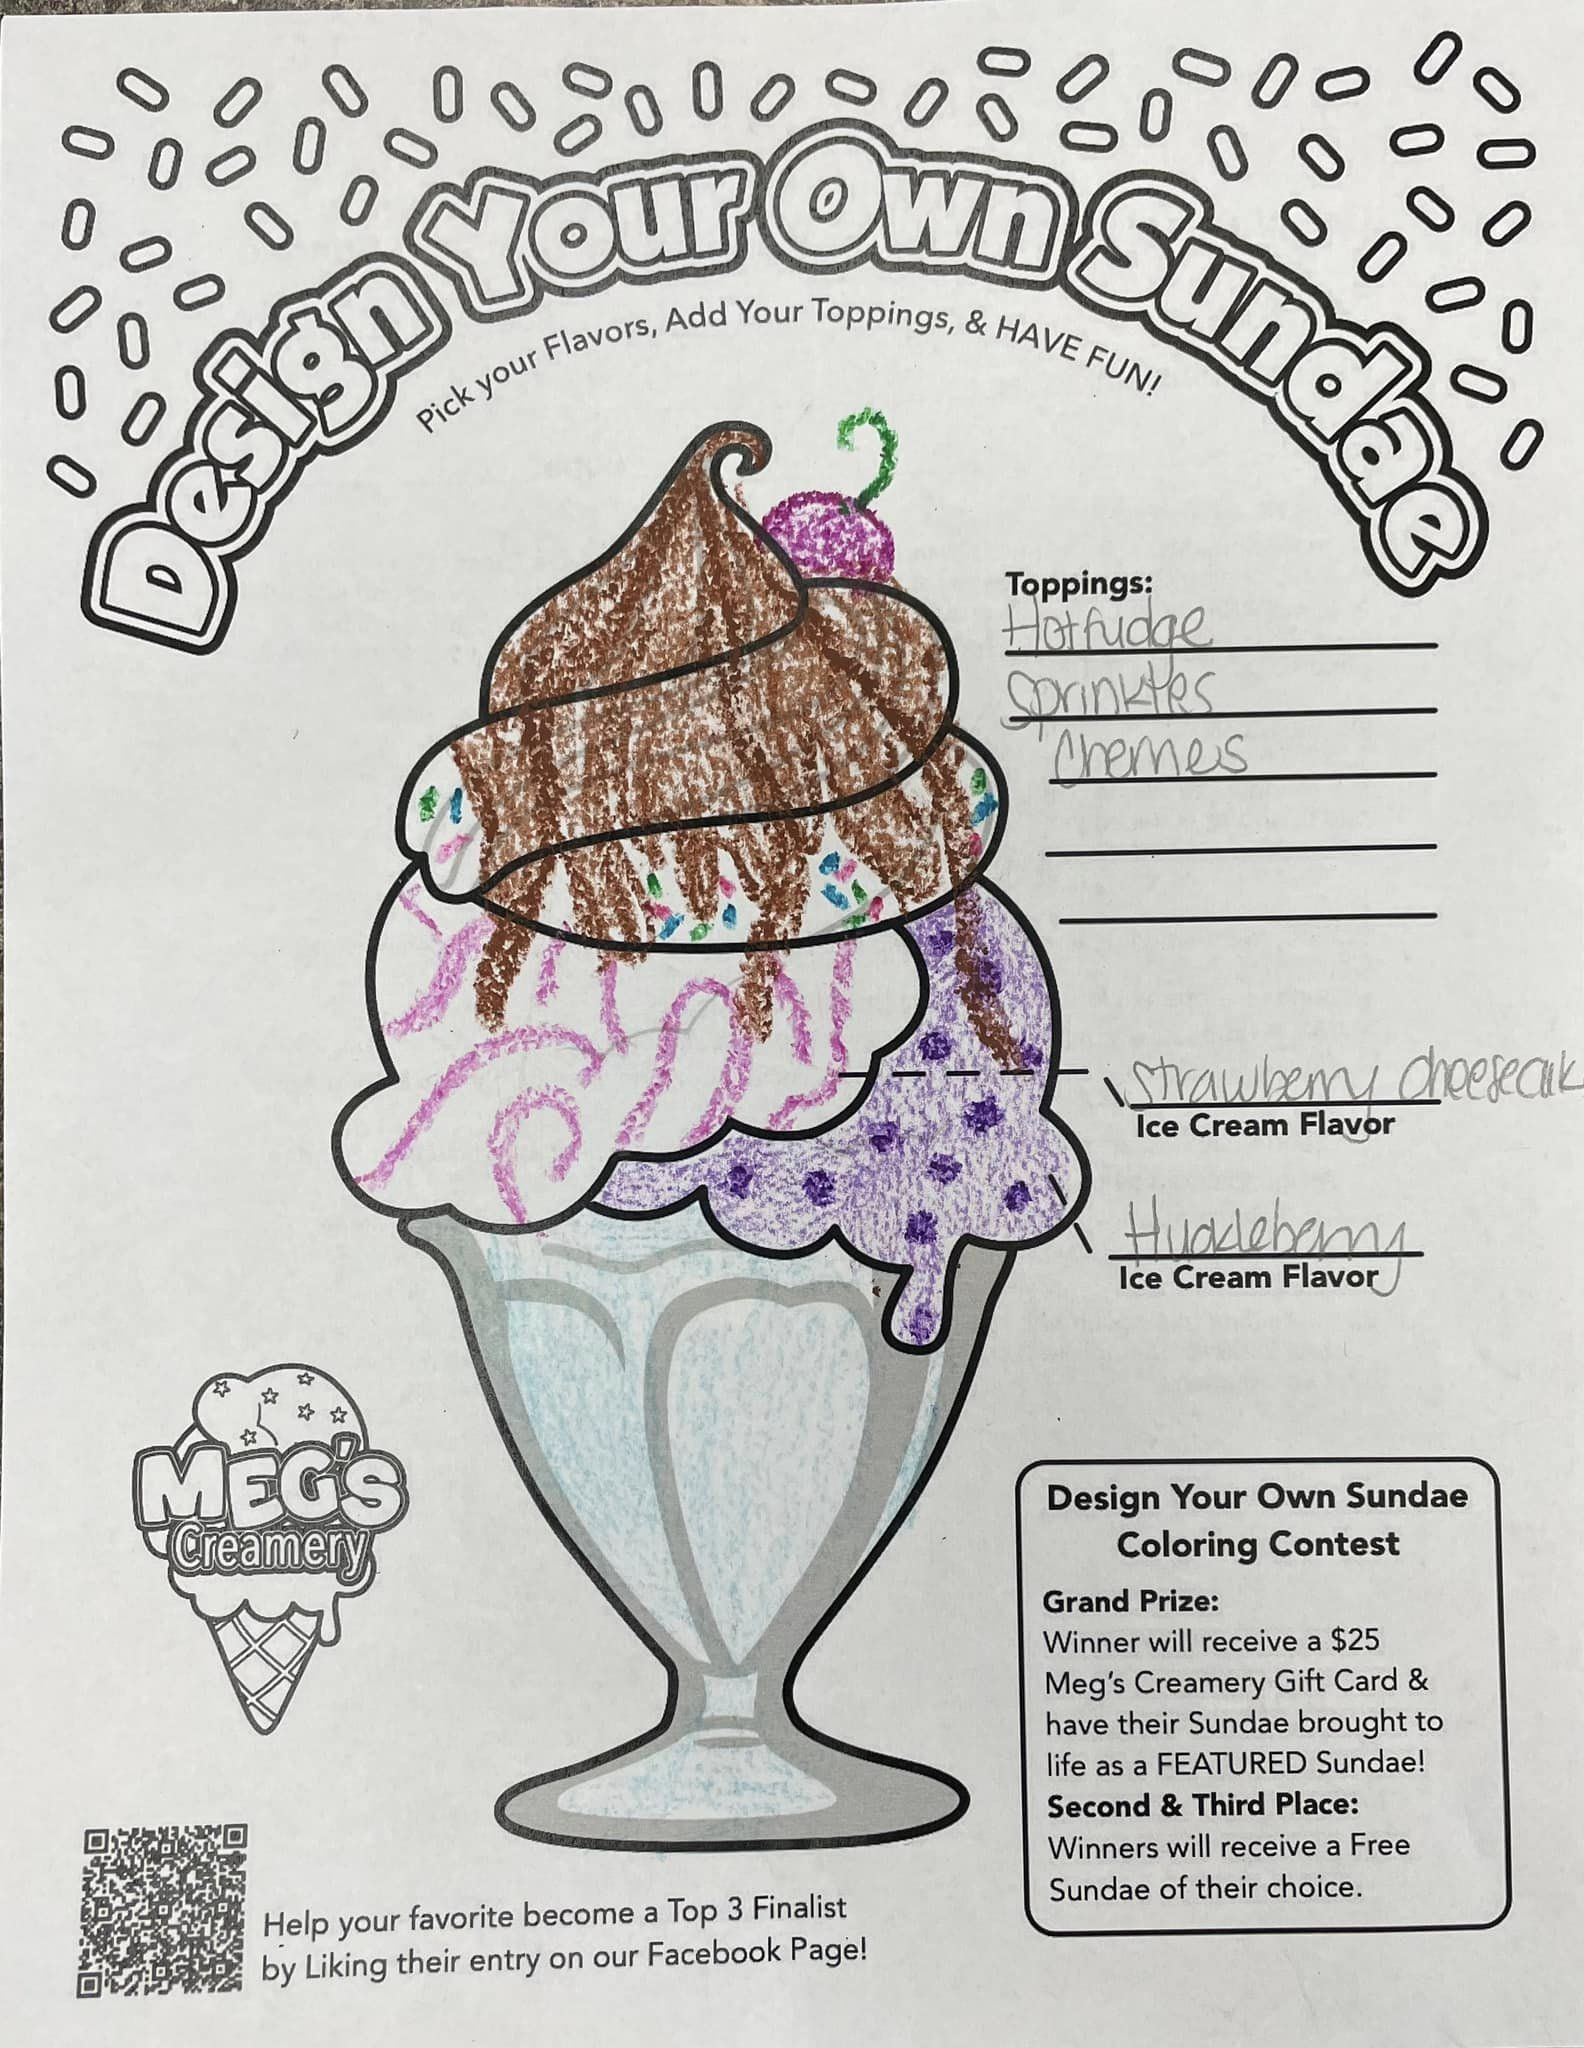 Design Your Own Sundae
Pick your Flavors, Add Your Toppings, & HAVE FUN!
Toppings:
Hotfudge
Sprinkles
Cherries
Strawberry cheesecak
Ice Cream Flavor
Huckleberry
Ice Cream Flavor
MEG'S
Creamery
Design Your Own Sundae
Coloring Contest
Grand Prize:
Winner will receive a $25
Meg's Creamery Gift Card &
have their Sundae brought to
life as a FEATURED Sundae!
Second & Third Place:
Winners will receive a Free
Sundae of their choice.
Help your favorite become a Top 3 Finalist
by Liking their entry on our Facebook Page!